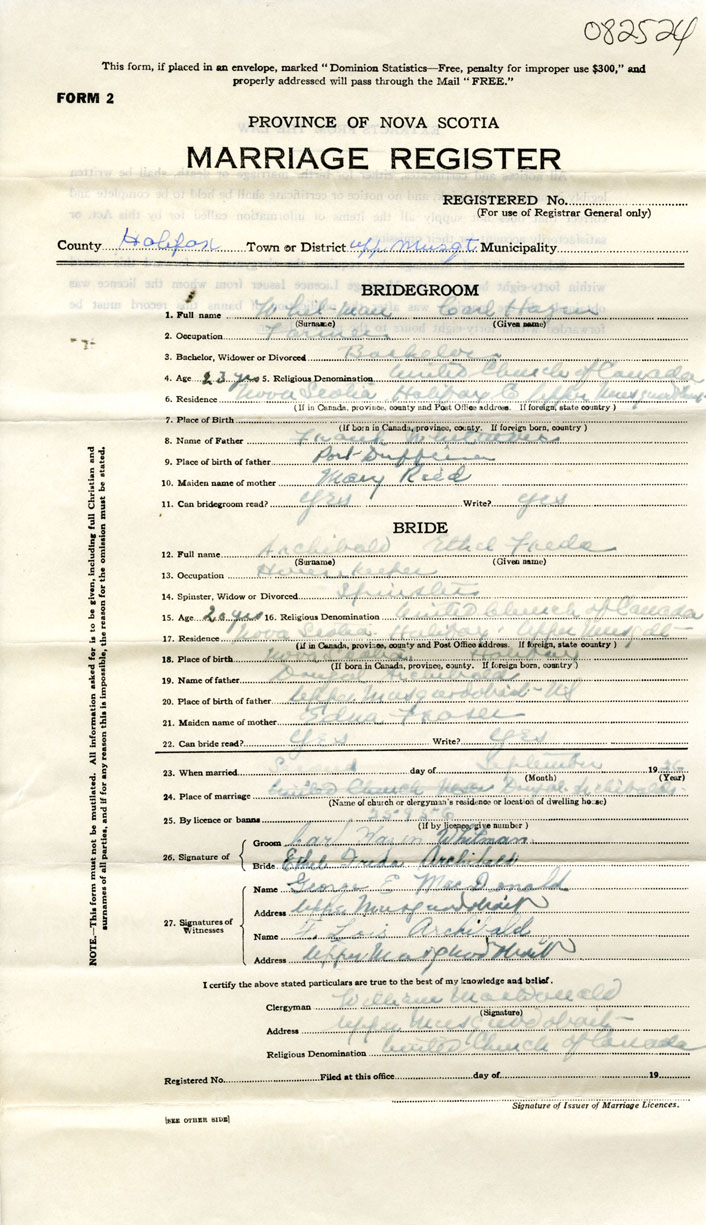 082524
This form, if placed in an envelope, marked "Dominion Statistics—Free, penalty for improper use $300," and
properly addressed will pass through the Mail "FREE."
FORM 2
PROVINCE OF NOVA SCOTIA
MARRIAGE REGISTER
REGISTERED No.
(For use of Registrar General only)
County Halifax Town or District upp Musqt Municipality
BRIDEGROOM
1. Full name Carl Hazen
(Surname) (Given name)
2. Occupation Farmer
3. Bachelor, Widower or Divorced Bachelor
4. Age 23 yrs 5. Religious Denomination United Church of Canada
6. Residence Nova Scotia Halifax Upper
(If in Canada, province, county and Post Office address. If foreign, state country)
7. Place of Birth
(If born in Canada, province, county. If foreign born, country)
8. Name of Father Frank
9. Place of birth of father Port Dufferin
10. Maiden name of mother Mary Reid
11. Can bridegroom read? yes Write? yes
BRIDE
12. Full name Archibald Ethel Freda
(Surname) (Given name)
13. Occupation House Keeper
14. Spinster, Widow or Divorced Spinster
15. Age 20 yrs 16. Religious Denomination United Church of Canada
17. Residence Nova Scotia Halifax Upper
(if in Canada, province, county and Post Office address. If foreign, state country)
18. Place of birth Nova Scotia
(If born in Canada, province, county. If foreign born, country)
19. Name of father Archibald
20. Place of birth of father Upper Musquodoboit NS
21. Maiden name of mother Edna Fraser
22. Can bride read? yes Write? yes
23. When married Second day of September 1936
(Month) (Year)
24. Place of marriage United Church Archibald
(Name of church or clergyman's residence or location of dwelling house)
25. By licence or banns
(If by licence, give number)
26. Signature of Groom Carl Hazen Whitman
Bride Ethel Freda Archibald
27. Signatures of Witnesses
Name George E MacDonald
Address Upper Musquodoboit
Name F. Lois Archibald
Address Upper Musquodoboit
I certify the above stated particulars are true to the best of my knowledge and belief.
Clergyman William MacDonald
(Signature)
Address Upper Musquodoboit
Religious Denomination United Church of Canada
Registered No. Filed at this office day of 19
Signature of Issuer of Marriage Licences.
[SEE OTHER SIDE]
NOTE.—This form must not be mutilated. All information asked for is to be given, including full Christian and
surnames of all parties, and if for any reason this is impossible, the reason for the omission must be stated.